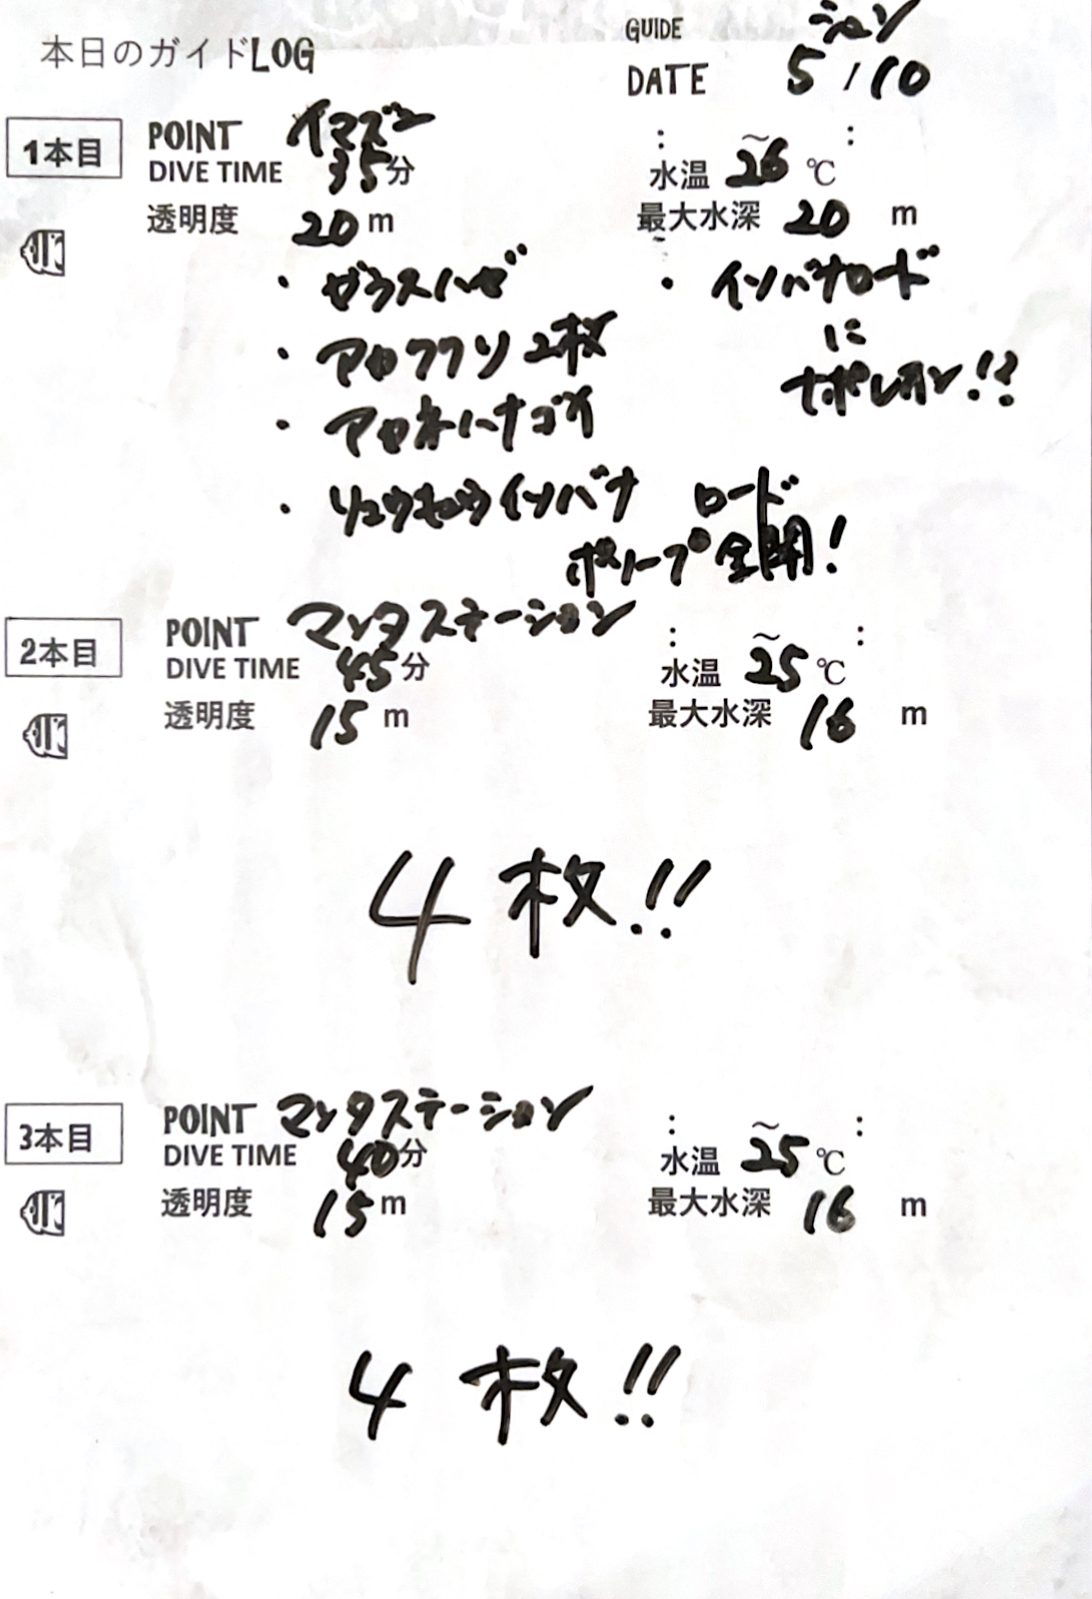 本日のガイドLOG
GUIDE ジュン
DATE 5/10
1本目
POINT イマズニ
DIVE TIME 35分
水温 ～26 ℃
透明度 20m
最大水深 20 m
・ガラスハゼ
・アカククリ2枚
・アカネハナゴイ
・リュウキュウイソバナ ロード
ポリープ全開!
・イソバナロード
に
ナポレオン!?
2本目
POINT マンタステーション
DIVE TIME 45分
水温 ～25 ℃
透明度 15 m
最大水深 16 m
4枚!!
3本目
POINT マンタステーション
DIVE TIME 40分
水温 ～25 ℃
透明度 15 m
最大水深 16 m
4枚!!